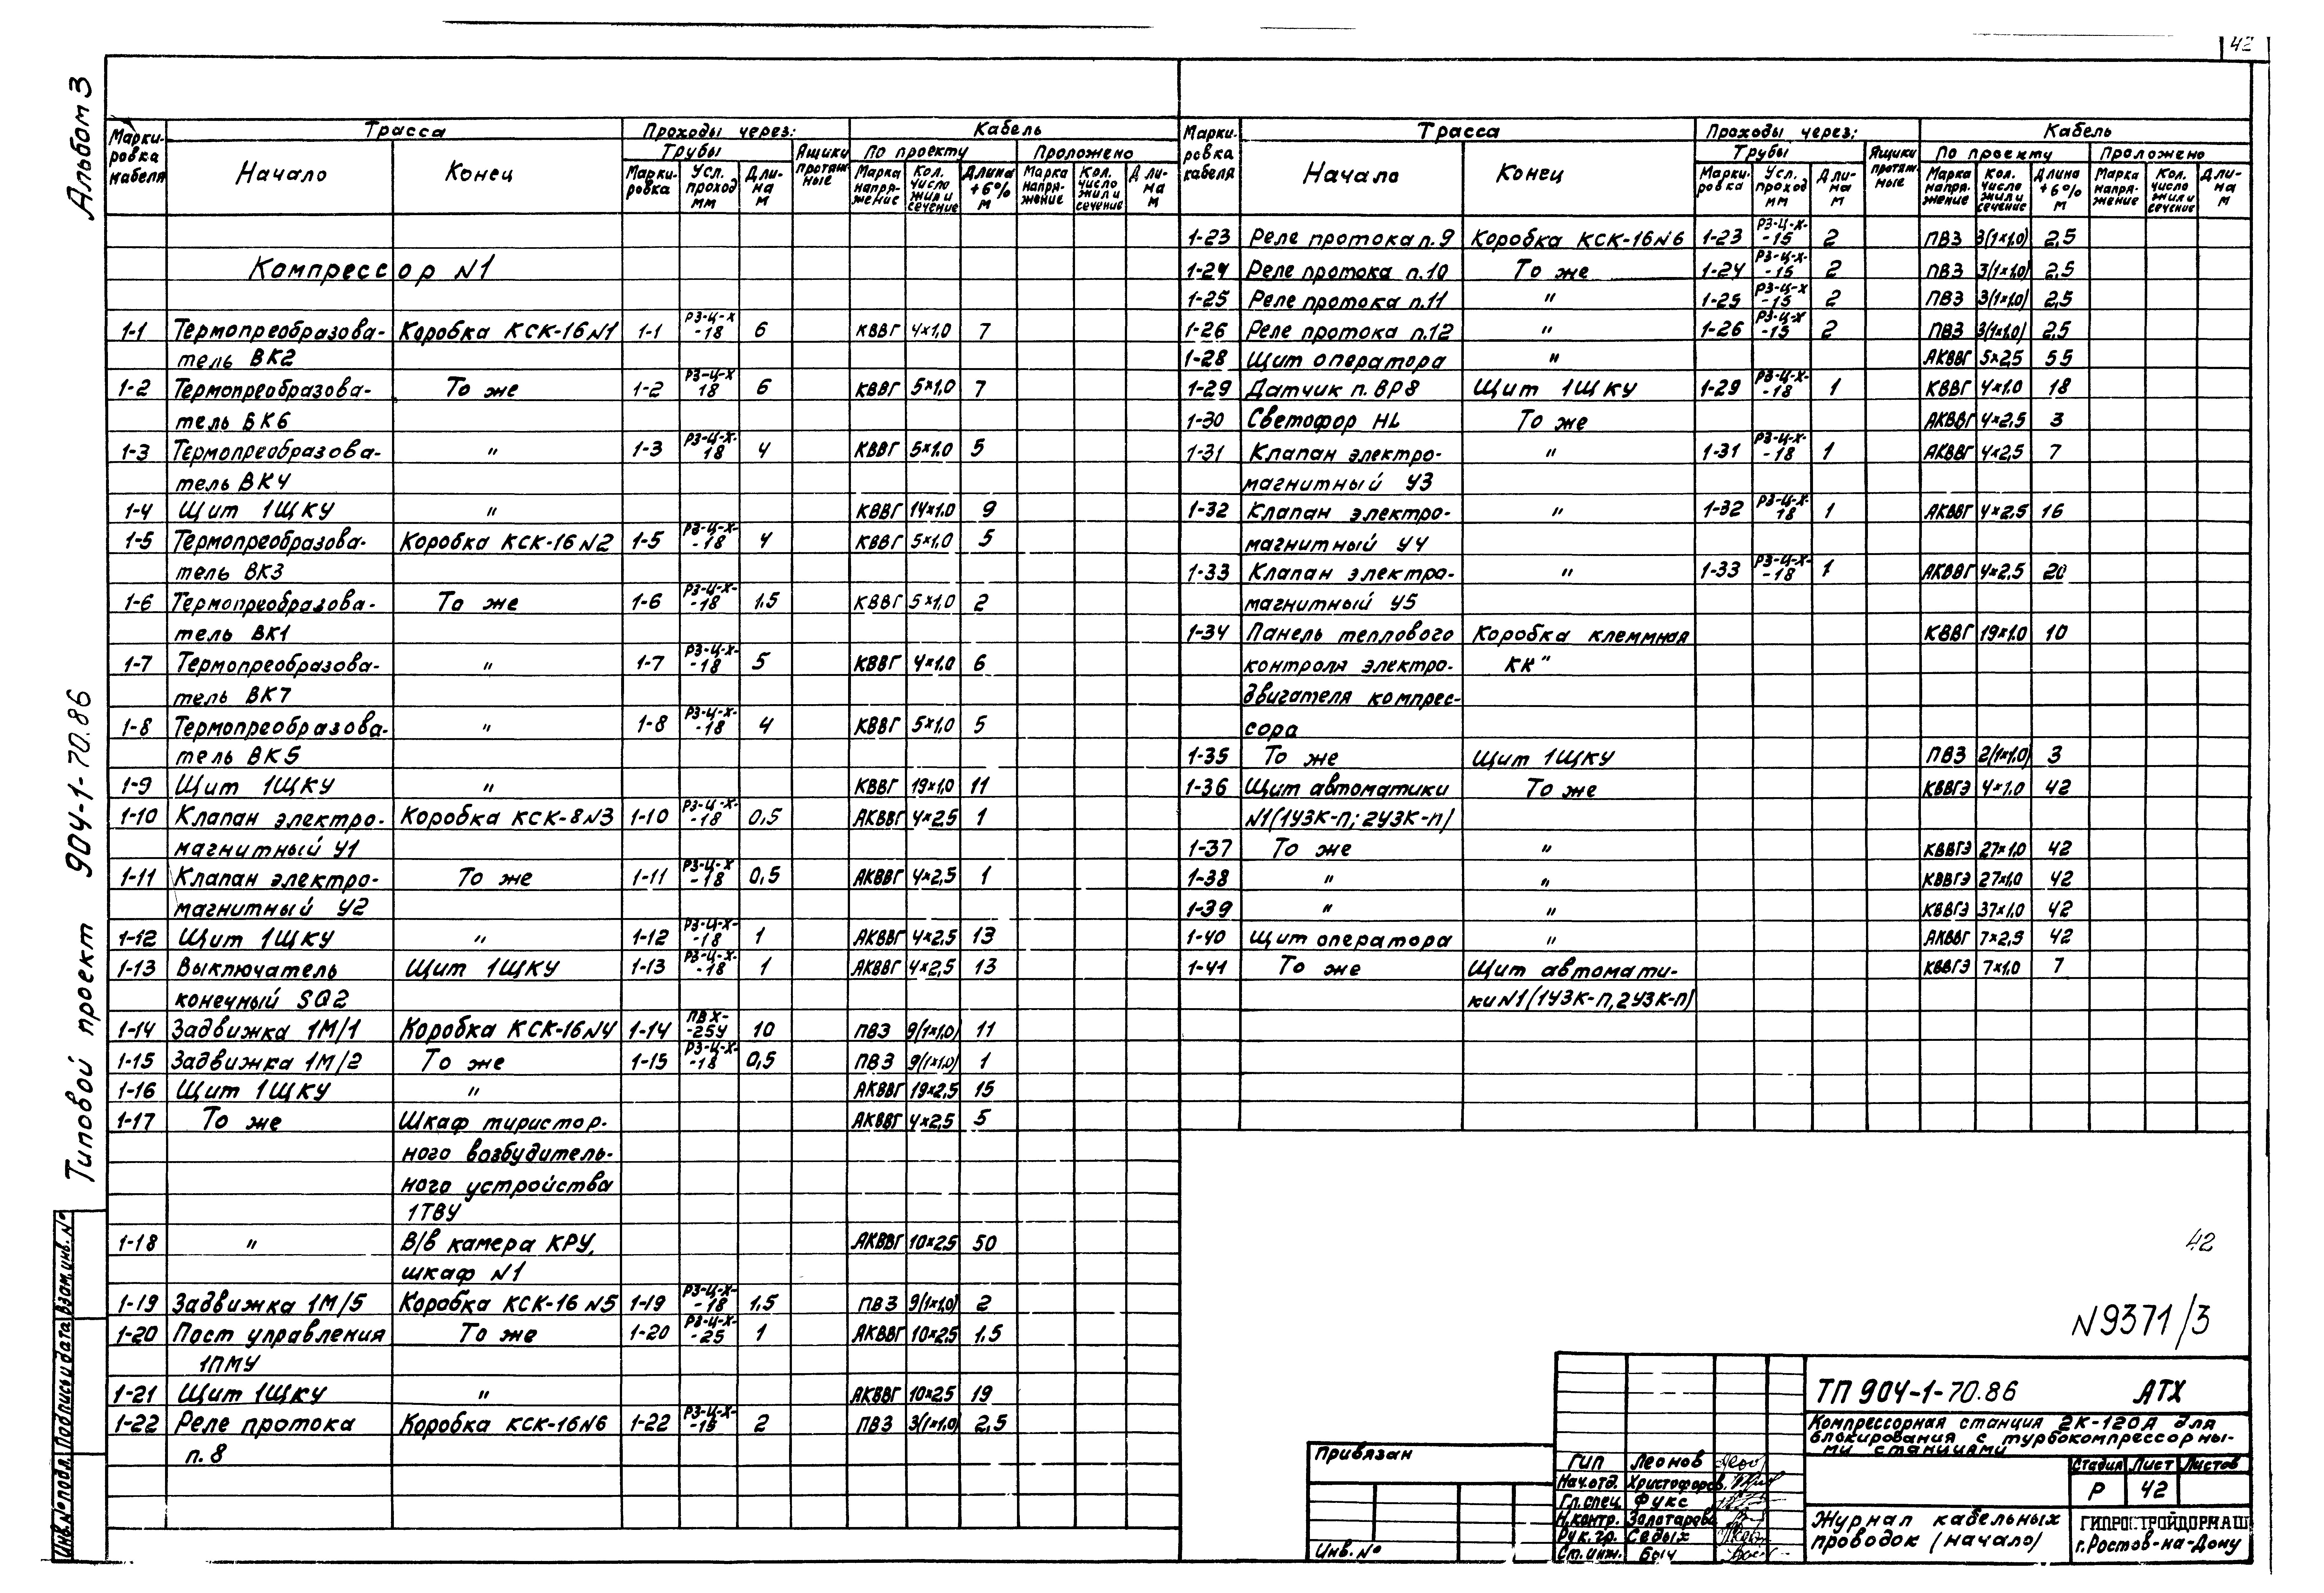 42
Альбом 3
Типовой проект 904-1-70.86
Инв.№ подл. Подпись и дата Взам.инв.№
Марки-ровка кабеля | Трасса | Проходы через: | Кабель
Начало | Конец | Трубы | Ящики протяж-ные | По проекту | Проложено
Марки-ровка | Усл. проход мм | Дли-на м | Марка напря-жение | Кол. число жил и сечение | Длина +6% м | Марка напря-жение | Кол. число жил и сечение | Дли-на м
Компрессор N1
1-1 Термопреобразова- Коробка КСК-16N1 1-1 РЗ-Ц-Х-18 6 КВВГ 4×1,0 7
тель ВК2
1-2 Термопреобразова- То же 1-2 РЗ-Ц-Х 18 6 КВВГ 5×1,0 7
тель ВК6
1-3 Термопреобразова- " 1-3 РЗ-Ц-Х-18 4 КВВГ 5×1,0 5
тель ВК4
1-4 Щит 1ЩКУ " КВВГ 14×1,0 9
1-5 Термопреобразова- Коробка КСК-16N2 1-5 РЗ-Ц-Х--18 4 КВВГ 5×1,0 5
тель ВК3
1-6 Термопреобразова- То же 1-6 РЗ-Ц-Х--18 1,5 КВВГ 5×1,0 2
тель ВК1
1-7 Термопреобразова- " 1-7 РЗ-Ц-Х--18 5 КВВГ 4×1,0 6
тель ВК7
1-8 Термопреобразова- " 1-8 РЗ-Ц-Х--18 4 КВВГ 5×1,0 5
тель ВК5
1-9 Щит 1ЩКУ " КВВГ 19×1,0 11
1-10 Клапан электро- Коробка КСК-8N3 1-10 РЗ-Ц-Х--18 0,5 АКВВГ 4×2,5 1
магнитный У1
1-11 Клапан электро- То же 1-11 РЗ-Ц-Х-18 0,5 АКВВГ 4×2,5 1
магнитный У2
1-12 Щит 1ЩКУ " 1-12 РЗ-Ц-Х--18 1 АКВВГ 4×2,5 13
1-13 Выключатель Щит 1ЩКУ 1-13 РЗ-Ц-Х--18 1 АКВВГ 4×2,5 13
конечный SQ2
1-14 Задвижка 1М/1 Коробка КСК-16N4 1-14 ПВХ--25У 10 ПВ3 9(1×1,0) 11
1-15 Задвижка 1М/2 То же 1-15 РЗ-Ц-Х--18 0,5 ПВ3 9(1×1,0) 1
1-16 Щит 1ЩКУ " АКВВГ 19×2,5 15
1-17 То же Шкаф тиристор- АКВВГ 4×2,5 5
ного возбудитель-
ного устройства
1ТВУ
1-18 " В/в камера КРУ, АКВВГ 10×2,5 50
шкаф N1
1-19 Задвижка 1М/5 Коробка КСК-16 N5 1-19 РЗ-Ц-Х--18 1,5 ПВ3 9(1×1,0) 2
1-20 Пост управления То же 1-20 РЗ-Ц-Х--25 1 АКВВГ 10×2,5 1,5
1ПМУ
1-21 Щит 1ЩКУ " АКВВГ 10×2,5 19
1-22 Реле протока Коробка КСК-16N6 1-22 РЗ-Ц-Х--15 2 ПВ3 3(1×1,0) 2,5
п.8
Марки-ровка кабеля | Трасса | Проходы через: | Кабель
Начало | Конец | Трубы | Ящики протяж-ные | По проекту | Проложено
Марки-ровка | Усл. проход мм | Дли-на м | Марка напря-жение | Кол. число жил и сечение | Длина +6% м | Марка напря-жение | Кол. число жил и сечение | Дли-на м
1-23 Реле протока п.9 Коробка КСК-16N6 1-23 РЗ-Ц-Х--15 2 ПВ3 3(1×1,0) 2,5
1-24 Реле протока п.10 То же 1-24 РЗ-Ц-Х--15 2 ПВ3 3(1×1,0) 2,5
1-25 Реле протока п.11 " 1-25 РЗ-Ц-Х-15 2 ПВ3 3(1×1,0) 2,5
1-26 Реле протока п.12 " 1-26 РЗ-Ц-Х-15 2 ПВ3 3(1×1,0) 2,5
1-28 Щит оператора " АКВВГ 5×2,5 55
1-29 Датчик п. ВР8 Щит 1ЩКУ 1-29 РЗ-Ц-Х--18 1 КВВГ 4×1,0 18
1-30 Светофор HL То же АКВВГ 4×2,5 3
1-31 Клапан электро- " 1-31 РЗ-Ц-Х--18 1 АКВВГ 4×2,5 7
магнитный У3
1-32 Клапан электро- " 1-32 РЗ-Ц-Х-18 1 АКВВГ 4×2,5 16
магнитный У4
1-33 Клапан электро- " 1-33 РЗ-Ц-Х--18 1 АКВВГ 4×2,5 20
магнитный У5
1-34 Панель теплового Коробка клеммная КВВГ 19×1,0 10
контроля электро- КК"
двигателя компрес-
сора
1-35 То же Щит 1ЩКУ ПВ3 2(1×1,0) 3
1-36 Щит автоматики То же КВВГЭ 4×1,0 42
N1(1УЗК-П; 2УЗК-П)
1-37 То же " КВВГЭ 27×1,0 42
1-38 " " КВВГЭ 27×1,0 42
1-39 " " КВВГЭ 37×1,0 42
1-40 Щит оператора " АКВВГ 7×2,5 42
1-41 То же Щит автомати- КВВГЭ 7×1,0 7
ки N1(1УЗК-П, 2УЗК-П)
42
N9371/3
Привязан
Инв. N°
ТП 904-1-70.86 АТХ
Компрессорная станция 2К-120А для
блокирования с турбокомпрессорны-
ми станциями
ГИП Леонов
Нач.отд. Христофоров
Гл.спец. Фукс
Н.контр. Золотарева
Рук.гр. Седых
Ст.инж. Быч
Стадия Лист Листов
Р 42
Журнал кабельных
проводок (начало)
ГИПРОСТРОЙДОРМАШ
г.Ростов-на-Дону